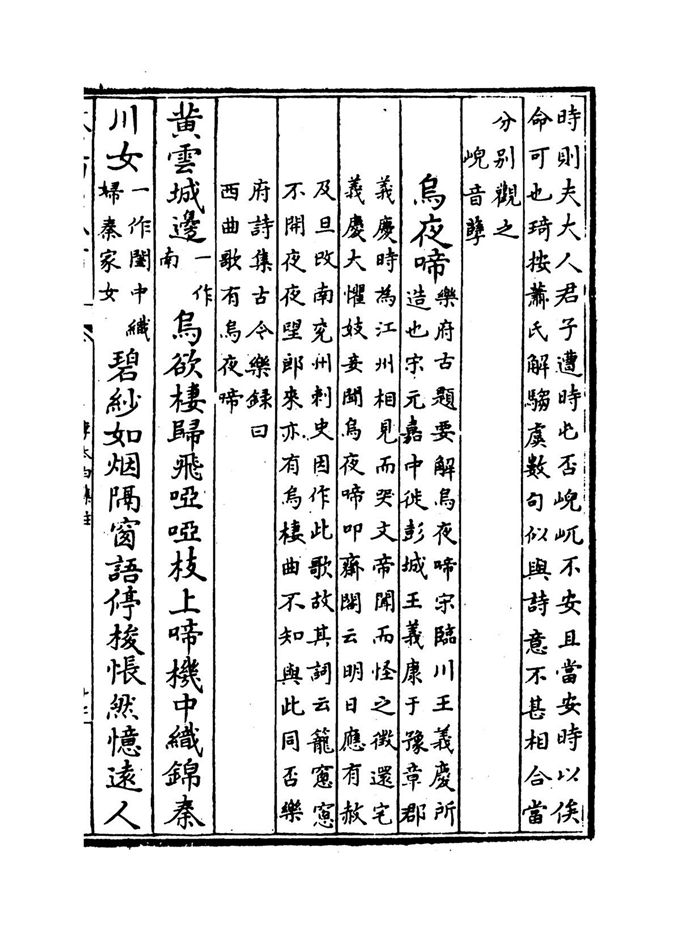 時則夫大人君子遭時屯否峴屼不安且當安時以俟
命可也琦按蕭氏解騶虞數句似與詩意不甚相合當
分别觀之
峴音孽
烏夜啼
樂府古題要解烏夜啼宋臨川王義慶所
造也宋元嘉中徙彭城王義康于豫章郡
義慶時為江州相見而哭文帝聞而怪之徵還宅
義慶大懼妓妾聞烏夜啼叩齋閣云明日應有赦
及旦改南兖州刺史因作此歌故其詞云籠窻窻
不開夜夜望郎來亦有烏棲曲不知與此同否樂
府詩集古今樂録曰
西曲歌有烏夜啼
黄雲城邊一作南烏欲棲歸飛啞啞枝上啼機中織錦秦
川女一作閨中織婦秦家女碧紗如烟隔窗語停梭悵然憶遠人